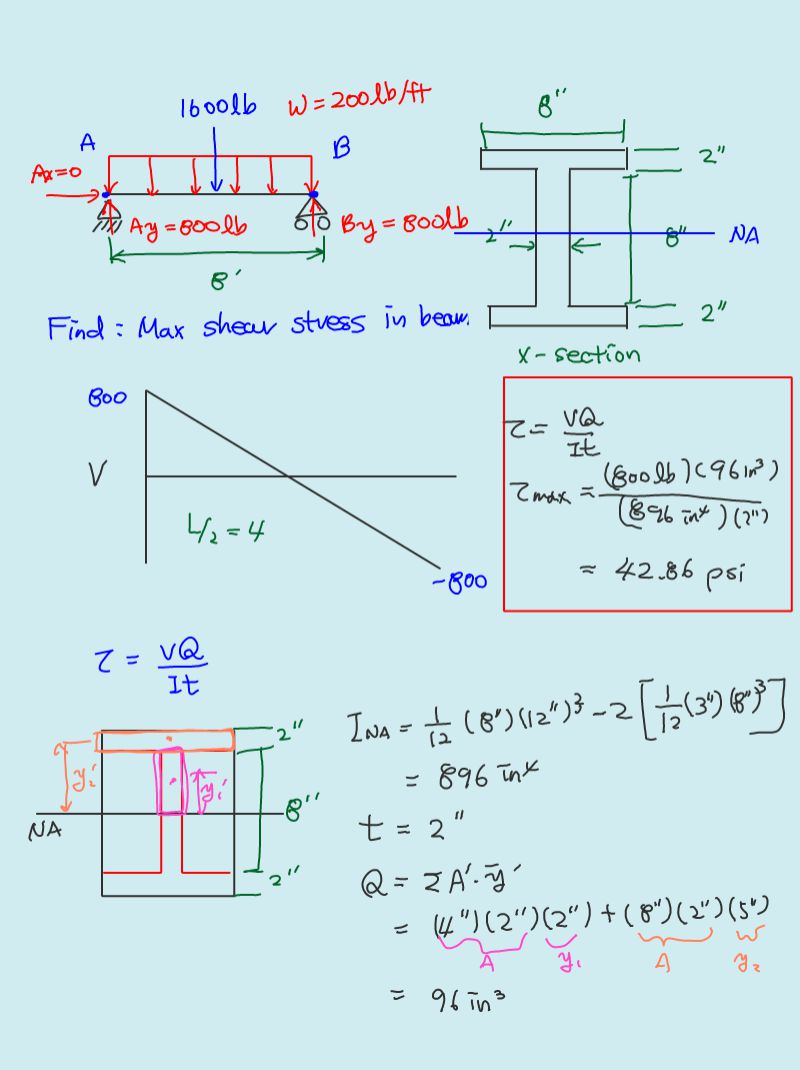 1600lb W = 200lb/ft
A B
Ax=0
Ay = 800lb By = 800lb
8'
8"
2"
2" 8" NA
2"
x-section
Find : Max shear stress in beam.
800
V
L/2 = 4
-800
τ = VQ/It
τmax = (800lb)(96in³)/(896in⁴)(2")
= 42.86 psi
τ = VQ/It
2"
y₂' y₁' 8"
NA
2"
I_NA = 1/12 (8")(12")³ - 2[1/12(3")(8")³]
= 896 in⁴
t = 2"
Q = ΣA'·ȳ'
= (4")(2")(2") + (8")(2")(5")
A y₁ A y₂
= 96 in³